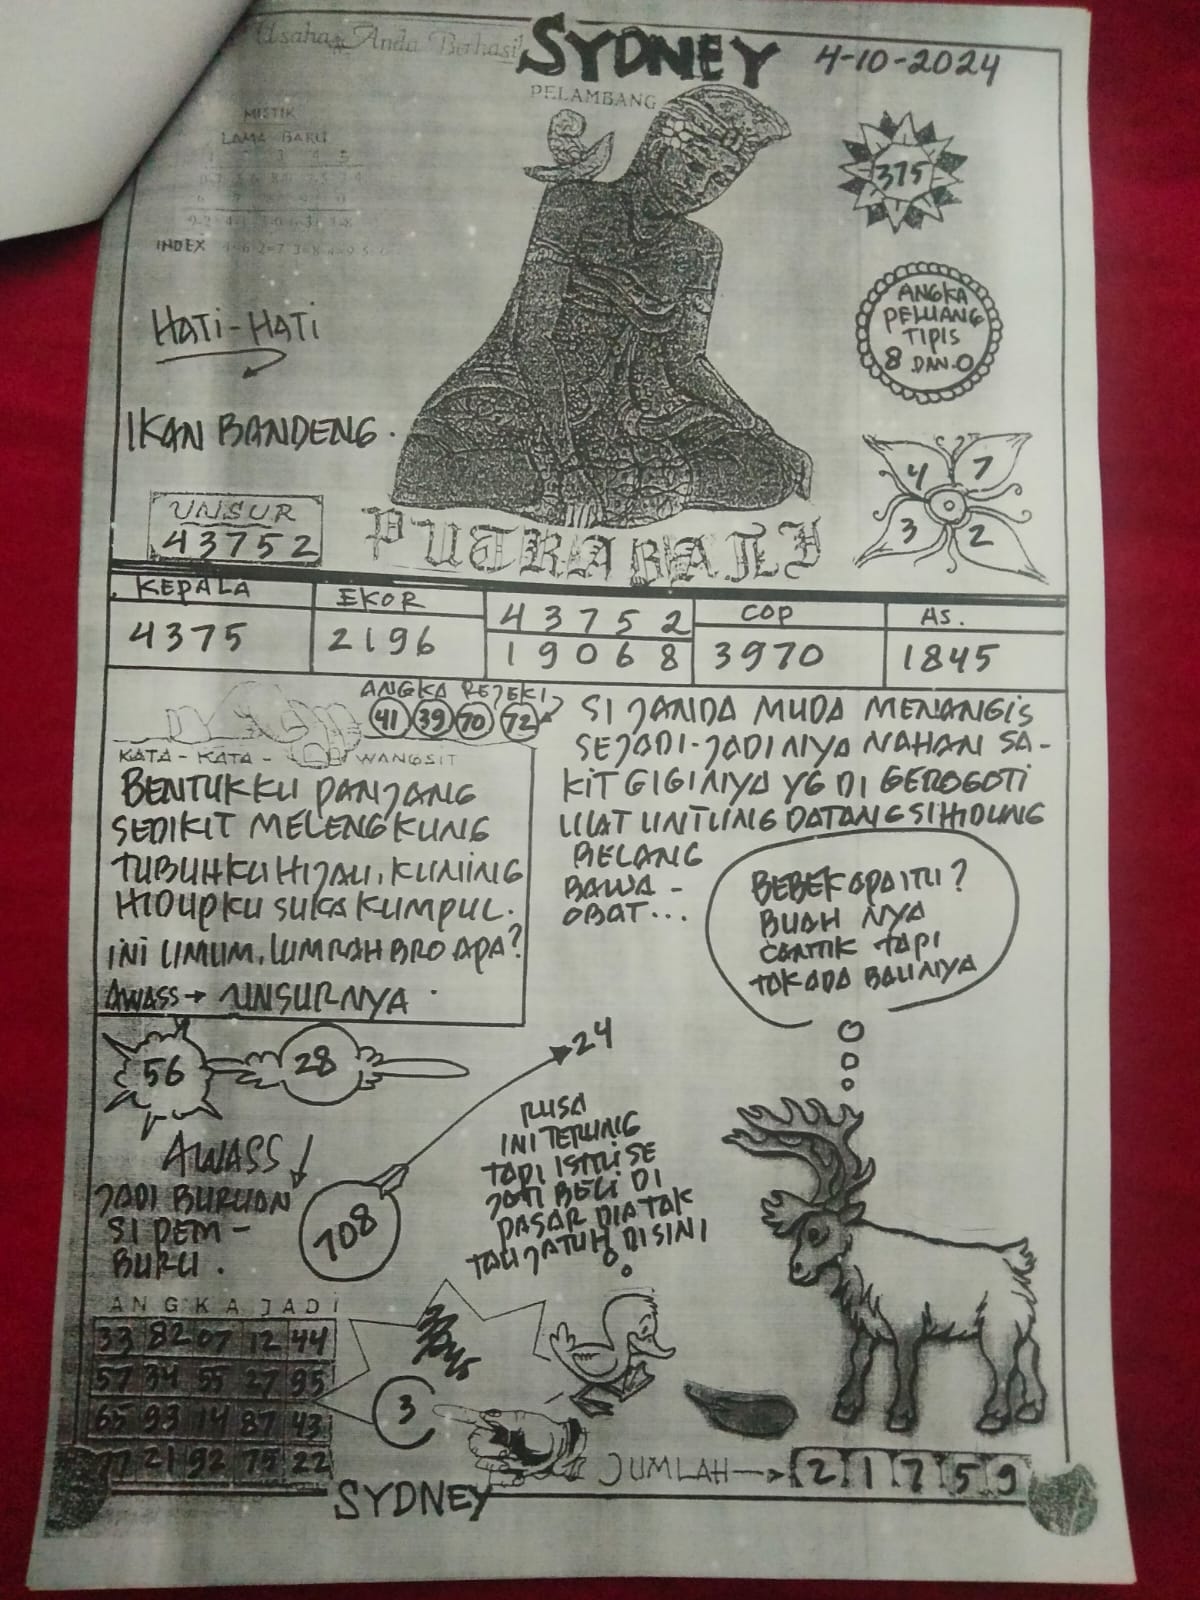 Usaha Anda Berhasil
SYDNEY
4-10-2024
PELAMBANG
MISTIK
LAMA BARU
INDEX
375
HATI-HATI
ANGKA
PELUANG
TIPIS
8 DAN.0
IKAN BANDENG.
4 7
3 2
UNSUR
43752
PUTRA BALI
KEPALA
4375
EKOR
2196
43752
19068
COP
3970
AS.
1845
ANGKA REJEKI
41 39 70 72
KATA-KATA- WANGSIT
BENTUKKU PANJANG
SEDIKIT MELENGKUNG
TUBUHKU HIJAU, KUNING
HIDUPKU SUKA KUMPUL.
INI UMUM, LUMRAH BRO APA?
AWASS → UNSURNYA.
SI JANDA MUDA MENANGIS
SEJADI-JADINYA NAHAN SA-
KIT GIGINYA YG DI GEROGOTI
ULAT UNTUNG DATANG SIHIDUNG
BELANG
BAWA -
OBAT...
BEBEK APA ITU?
BUAH NYA
CANTIK TAPI
TAK ADA BAUNYA
56
28
24
AWASS
JADI BURUAN
SI PEM-
BURU.
708
RUSA
INI TERUNG
TAPI ISTRI SE
JATI BELI DI
PASAR DIA TAK
TAU JATUH DISINI
ANGKA JADI
33 82 07 12 44
57 34 55 27 95
65 93 14 87 43
77 21 92 75 22
3
SYDNEY
JUMLAH → 21759